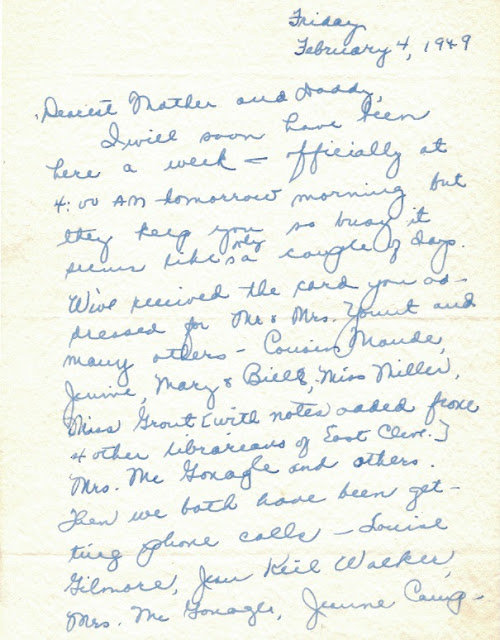 Friday
February 4, 1949
Dearest Mother and Daddy,
I will soon have been
here a week – officially at
4:00 AM tomorrow morning but
they keep you so busy it
seems like only a couple of days.
We've received the card you ad-
dressed for Mr & Mrs. Yount and
many others – Cousin Maude,
Jennie, Mary & Bill, Miss Miller,
Miss Grout [with notes added from
4 other librarians of East Cleve.]
Mrs. Mc Gonagle and others.
Then we both have been get-
ting phone calls – Louise
Gilmore, Jean Keil Walker,
Mrs. Mc Gonagle, Jeanne